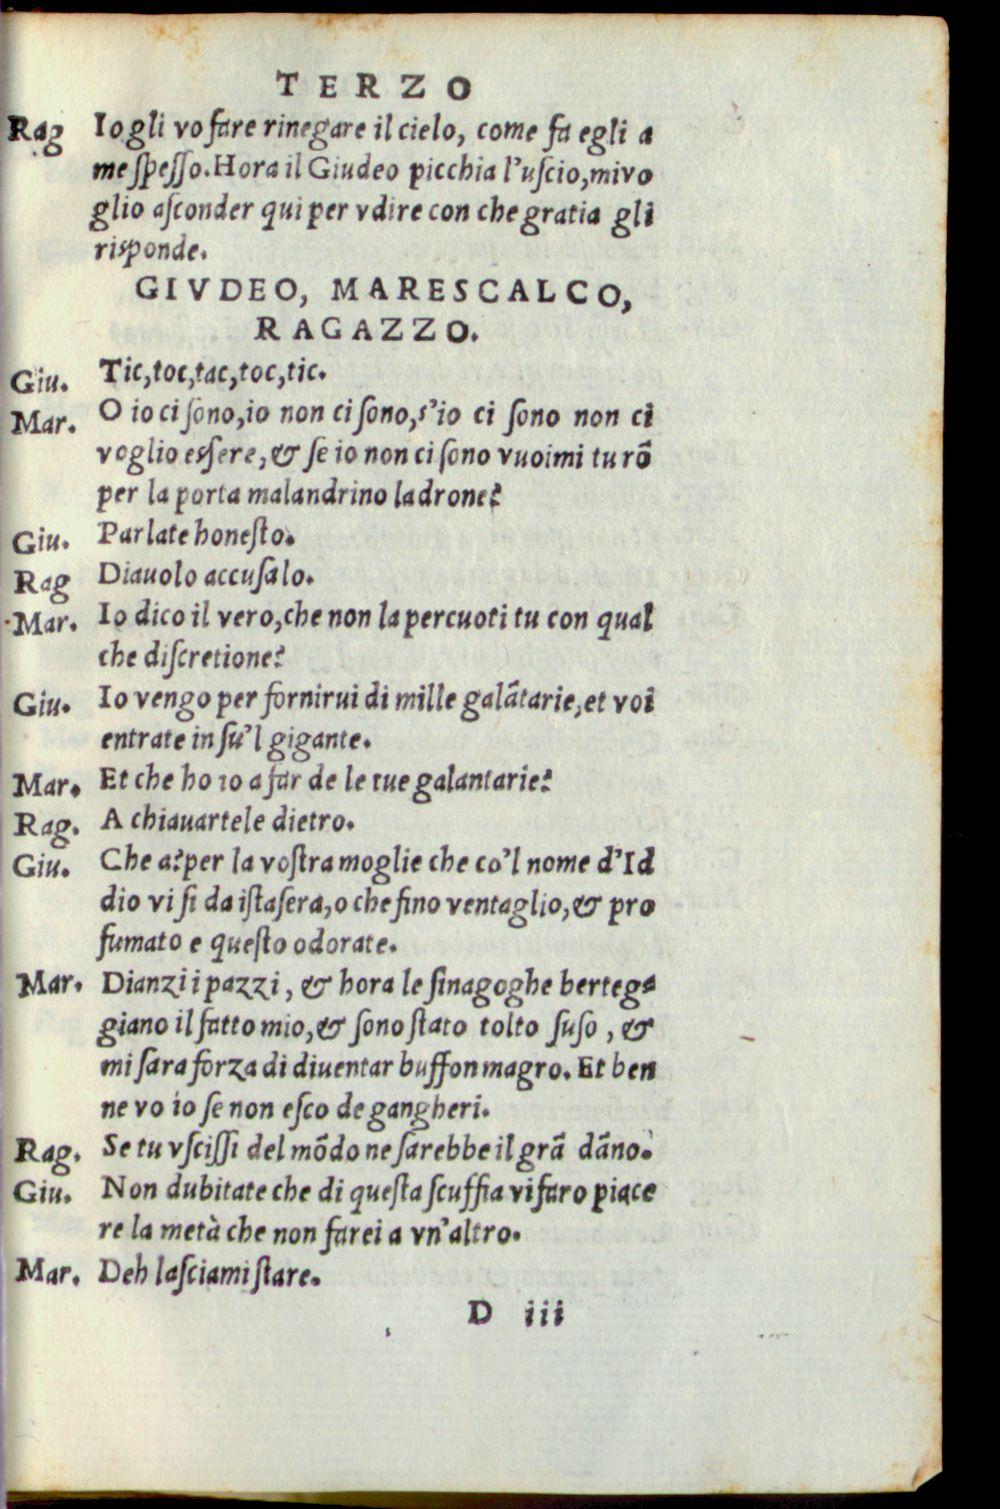 TERZO
Rag Io gli vo fare rinegare il cielo, come fa egli a
me speſſo. Hora il Giudeo picchia l'uſcio, mi vo
glio aſconder qui per vdire con che gratia gli
risponde.
GIVDEO, MARESCALCO,
RAGAZZO.
Giu. Tic, toc, tac, toc, tic.
Mar. O io ci ſono, io non ci ſono, s'io ci ſono non ci
voglio essere, & ſe io non ci ſono vuoimi tu rõ
per la porta malandrino ladrone?
Giu. Parlate honeſto.
Rag Diauolo accuſalo.
Mar. Io dico il vero, che non la percuoti tu con qual
che diſcretione?
Giu. Io vengo per fornirui di mille galãtarie, et voi
entrate in ſu'l gigante.
Mar. Et che ho io a far de le tue galantarie?
Rag. A chiauartele dietro.
Giu. Che a? per la voſtra moglie che co'l nome d'Id
dio vi ſi da iſtaſera, o che fino ventaglio, & pro
fumato e queſto odorate.
Mar. Dianzi i pazzi, & hora le ſinagoghe bertega
giano il fatto mio, & ſono ſtato tolto ſuſo, &
mi ſara forza di diuentar buffon magro. Et ben
ne vo io ſe non eſco de gangheri.
Rag. Se tu vſciſſi del mõdo ne ſarebbe il grã dãno.
Giu. Non dubitate che di queſta ſcuffia vi faro piace
re la metà che non farei a vn'altro.
Mar. Deh laſciami ſtare.
D iii